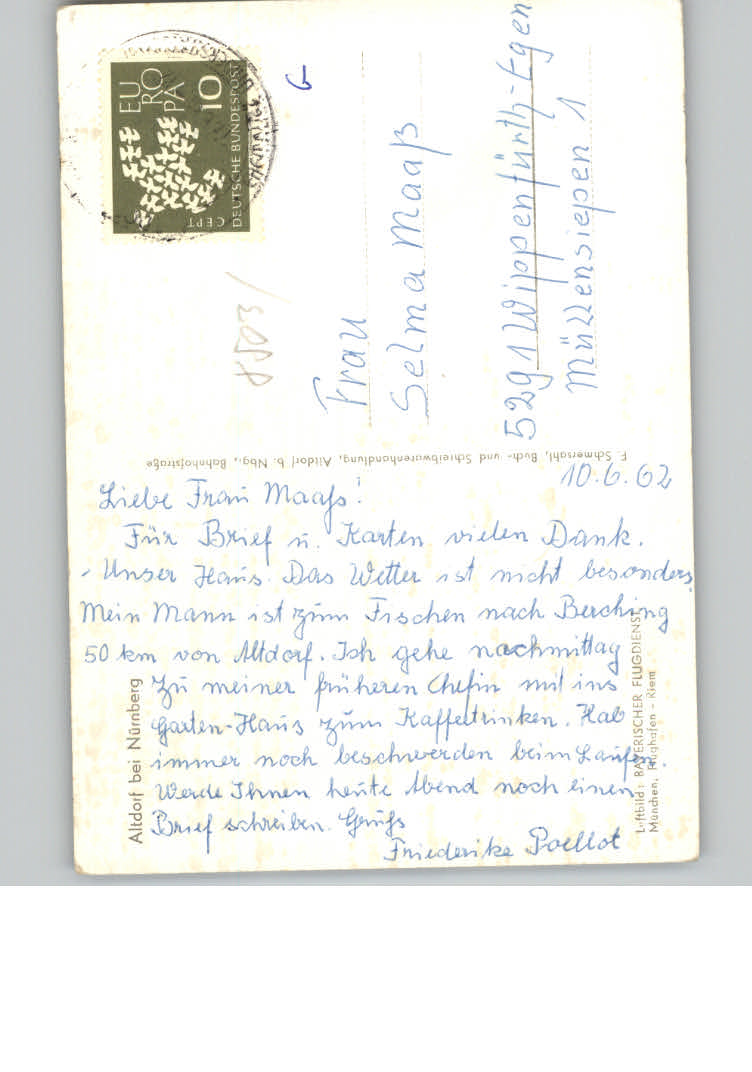 EU
RO
PA
10
DEUTSCHE BUNDESPOST
CEPT
8503/
Frau
Selma Maaß
5291 Wippenfürth-Egen
Müllensiepen 1
F. Schmersahl, Buch- und Schreibwarenhandlung, Altdorf b. Nbg., Bahnhofstraße
10.6.62
Liebe Frau Maaß!
Für Brief u. Karten vielen Dank.
- Unser Haus. Das Wetter ist nicht besonders.
Mein Mann ist zum Fischen nach Berching
50 km von Altdorf. Ich gehe nachmittag
zu meiner früheren Chefin mit ins
Garten-Haus zum Kaffeetrinken. Hab
immer noch beschwerden beim Laufen.
Werde Ihnen heute Abend noch einen
Brief schreiben. Gruß
Friederike Poellot
Altdorf bei Nürnberg
Luftbild: BAYERISCHER FLUGDIENST
München, Flughafen - Riem